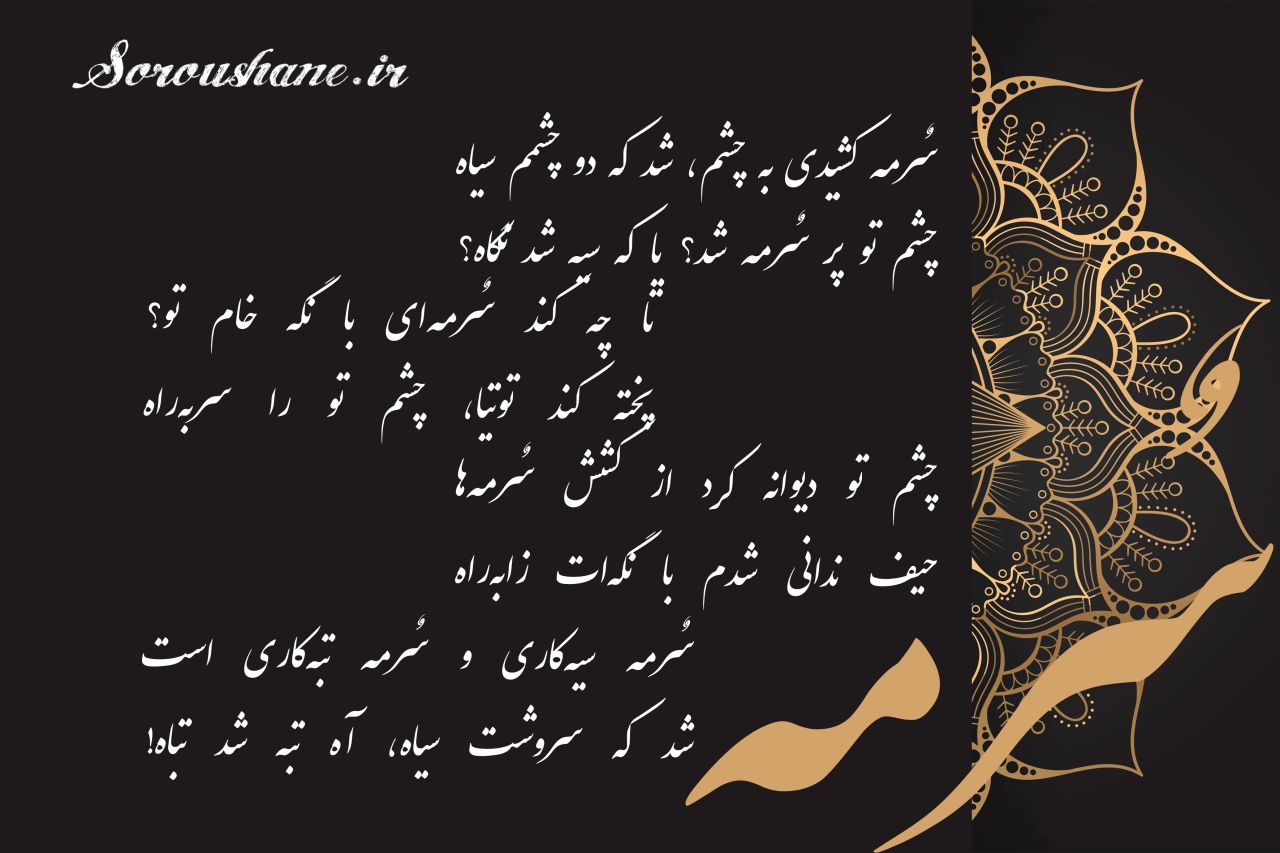 Soroushane.ir
سُرمه کشیدی به چشم، شد که دو چشمم سیاه
چشم تو پر سُرمه شد؟ یا که سیه شد نگاه؟
تا چه کند سُرمه‌ای با نگه خام تو؟
پخته کند توتیا، چشم تو را سربه‌راه
چشم تو دیوانه کرد از کشش سُرمه‌ها
حیف ندانی شدم با نگه‌ات زابه‌راه
سُرمه سیه‌کاری و سُرمه تبه‌کاری است
شد که سروشت سیاه، آه تبه شد تباه!
سرمه